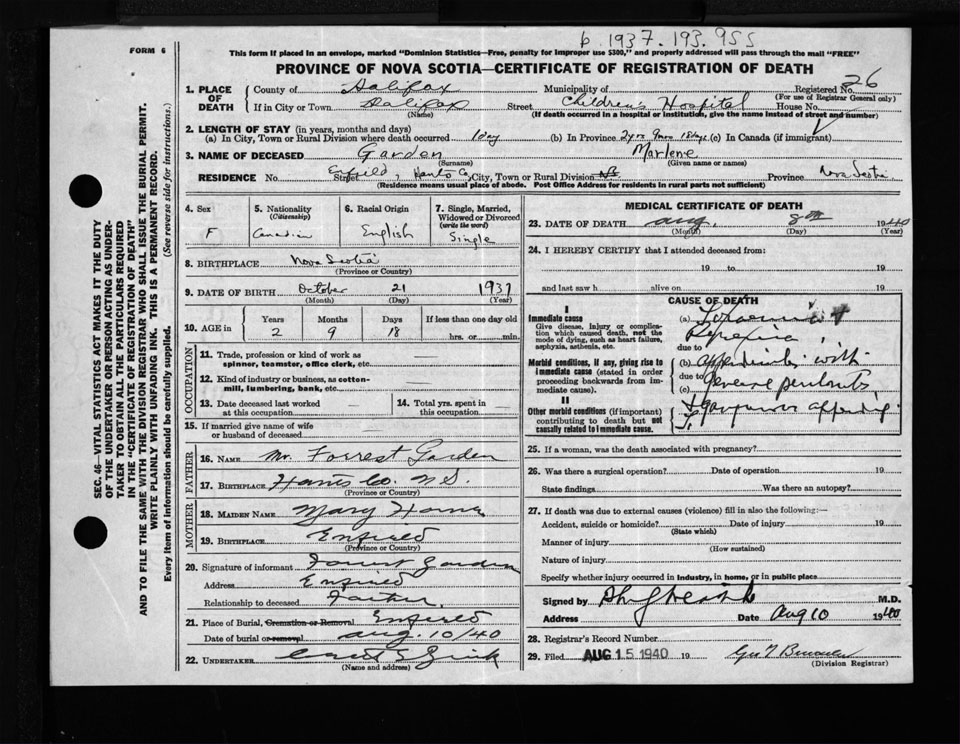 b 1937. 193. 955
FORM 6
This form if placed in an envelope, marked "Dominion Statistics—Free, penalty for improper use $300," and properly addressed will pass through the mail "FREE"
PROVINCE OF NOVA SCOTIA—CERTIFICATE OF REGISTRATION OF DEATH
1. PLACE OF DEATH
County of Halifax
If in City or Town Halifax
(Name)
Municipality of
Registered No. 26
(For use of Registrar General only)
Street Children's Hospital House No.
(If death occurred in a hospital or institution, give the name instead of street and number)
2. LENGTH OF STAY (in years, months and days)
(a) In City, Town or Rural Division where death occurred 1 day (b) In Province 2 yrs 9 mos 18 days (c) In Canada (if immigrant)
3. NAME OF DECEASED Garden Marlene
(Surname) (Given name or names)
RESIDENCE No. Street Enfield, Hants Co. City, Town or Rural Division N.S. Province Nova Scotia
(Residence means usual place of abode. Post Office Address for residents in rural parts not sufficient)
4. Sex
F
5. Nationality (Citizenship)
Canadian
6. Racial Origin
English
7. Single, Married, Widowed or Divorced (write the word)
Single
8. BIRTHPLACE Nova Scotia
(Province or Country)
9. DATE OF BIRTH October 21 1937
(Month) (Day) (Year)
10. AGE in
Years Months Days If less than one day old
2 9 18 hrs. or min.
OCCUPATION
11. Trade, profession or kind of work as spinner, teamster, office clerk, etc.
12. Kind of industry or business, as cotton-mill, lumbering, bank, etc.
13. Date deceased last worked at this occupation
14. Total yrs. spent in this occupation
15. If married give name of wife or husband of deceased
FATHER
16. NAME Mr. Forrest Garden
17. BIRTHPLACE Hants Co. N.S.
(Province or Country)
MOTHER
18. MAIDEN NAME Mary Horne
19. BIRTHPLACE Enfield
(Province or Country)
20. Signature of informant Forrest Garden
Address Enfield
Relationship to deceased Father
21. Place of Burial, Cremation or Removal Enfield
Date of burial or removal Aug. 10/40
22. UNDERTAKER
(Name and address)
MEDICAL CERTIFICATE OF DEATH
23. DATE OF DEATH Aug. 8th 1940
(Month) (Day) (Year)
24. I HEREBY CERTIFY that I attended deceased from:
19 to 19
and last saw h alive on 19
CAUSE OF DEATH
I
Immediate cause
Give disease, injury or complication which caused death, not the mode of dying, such as heart failure, asphyxia, asthenia, etc.
(a) Toxaemia +
due to
Morbid conditions, if any, giving rise to immediate cause (stated in order proceeding backwards from immediate cause).
(b) appendicitis with
due to
(c) general peritonitis
II
Other morbid conditions (if important) contributing to death but not causally related to immediate cause.
25. If a woman, was the death associated with pregnancy?
26. Was there a surgical operation? Date of operation 19
State findings Was there an autopsy?
27. If death was due to external causes (violence) fill in also the following:—
Accident, suicide or homicide? Date of injury 19
(State which)
Manner of injury
(How sustained)
Nature of injury
Specify whether injury occurred in industry, in home, or in public place
Signed by M.D.
Address Date Aug 10 1940
28. Registrar's Record Number
29. Filed AUG 15 1940 19
(Division Registrar)
SEC. 46—VITAL STATISTICS ACT MAKES IT THE DUTY
OF THE UNDERTAKER OR PERSON ACTING AS UNDER-
TAKER TO OBTAIN ALL THE PARTICULARS REQUIRED
IN THE "CERTIFICATE OF REGISTRATION OF DEATH"
AND TO FILE THE SAME WITH THE DIVISION REGISTRAR WHO SHALL ISSUE THE BURIAL PERMIT.
WRITE PLAINLY WITH UNFADING INK. THIS IS A PERMANENT RECORD.
Every item of information should be carefully supplied. (See reverse side for instructions.)